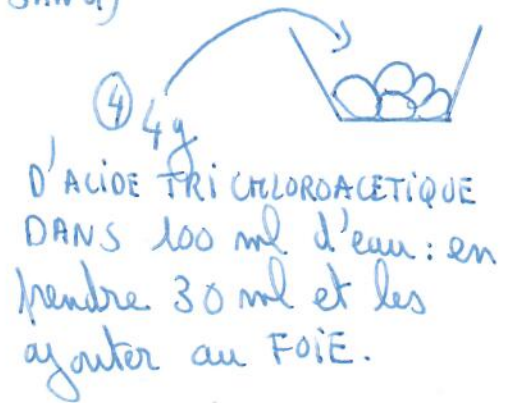 ④ 4g
D'ACIDE TRICHLOROACETIQUE
DANS 100 ml d'eau : en
prendre 30 ml et les
ajouter au FOIE.